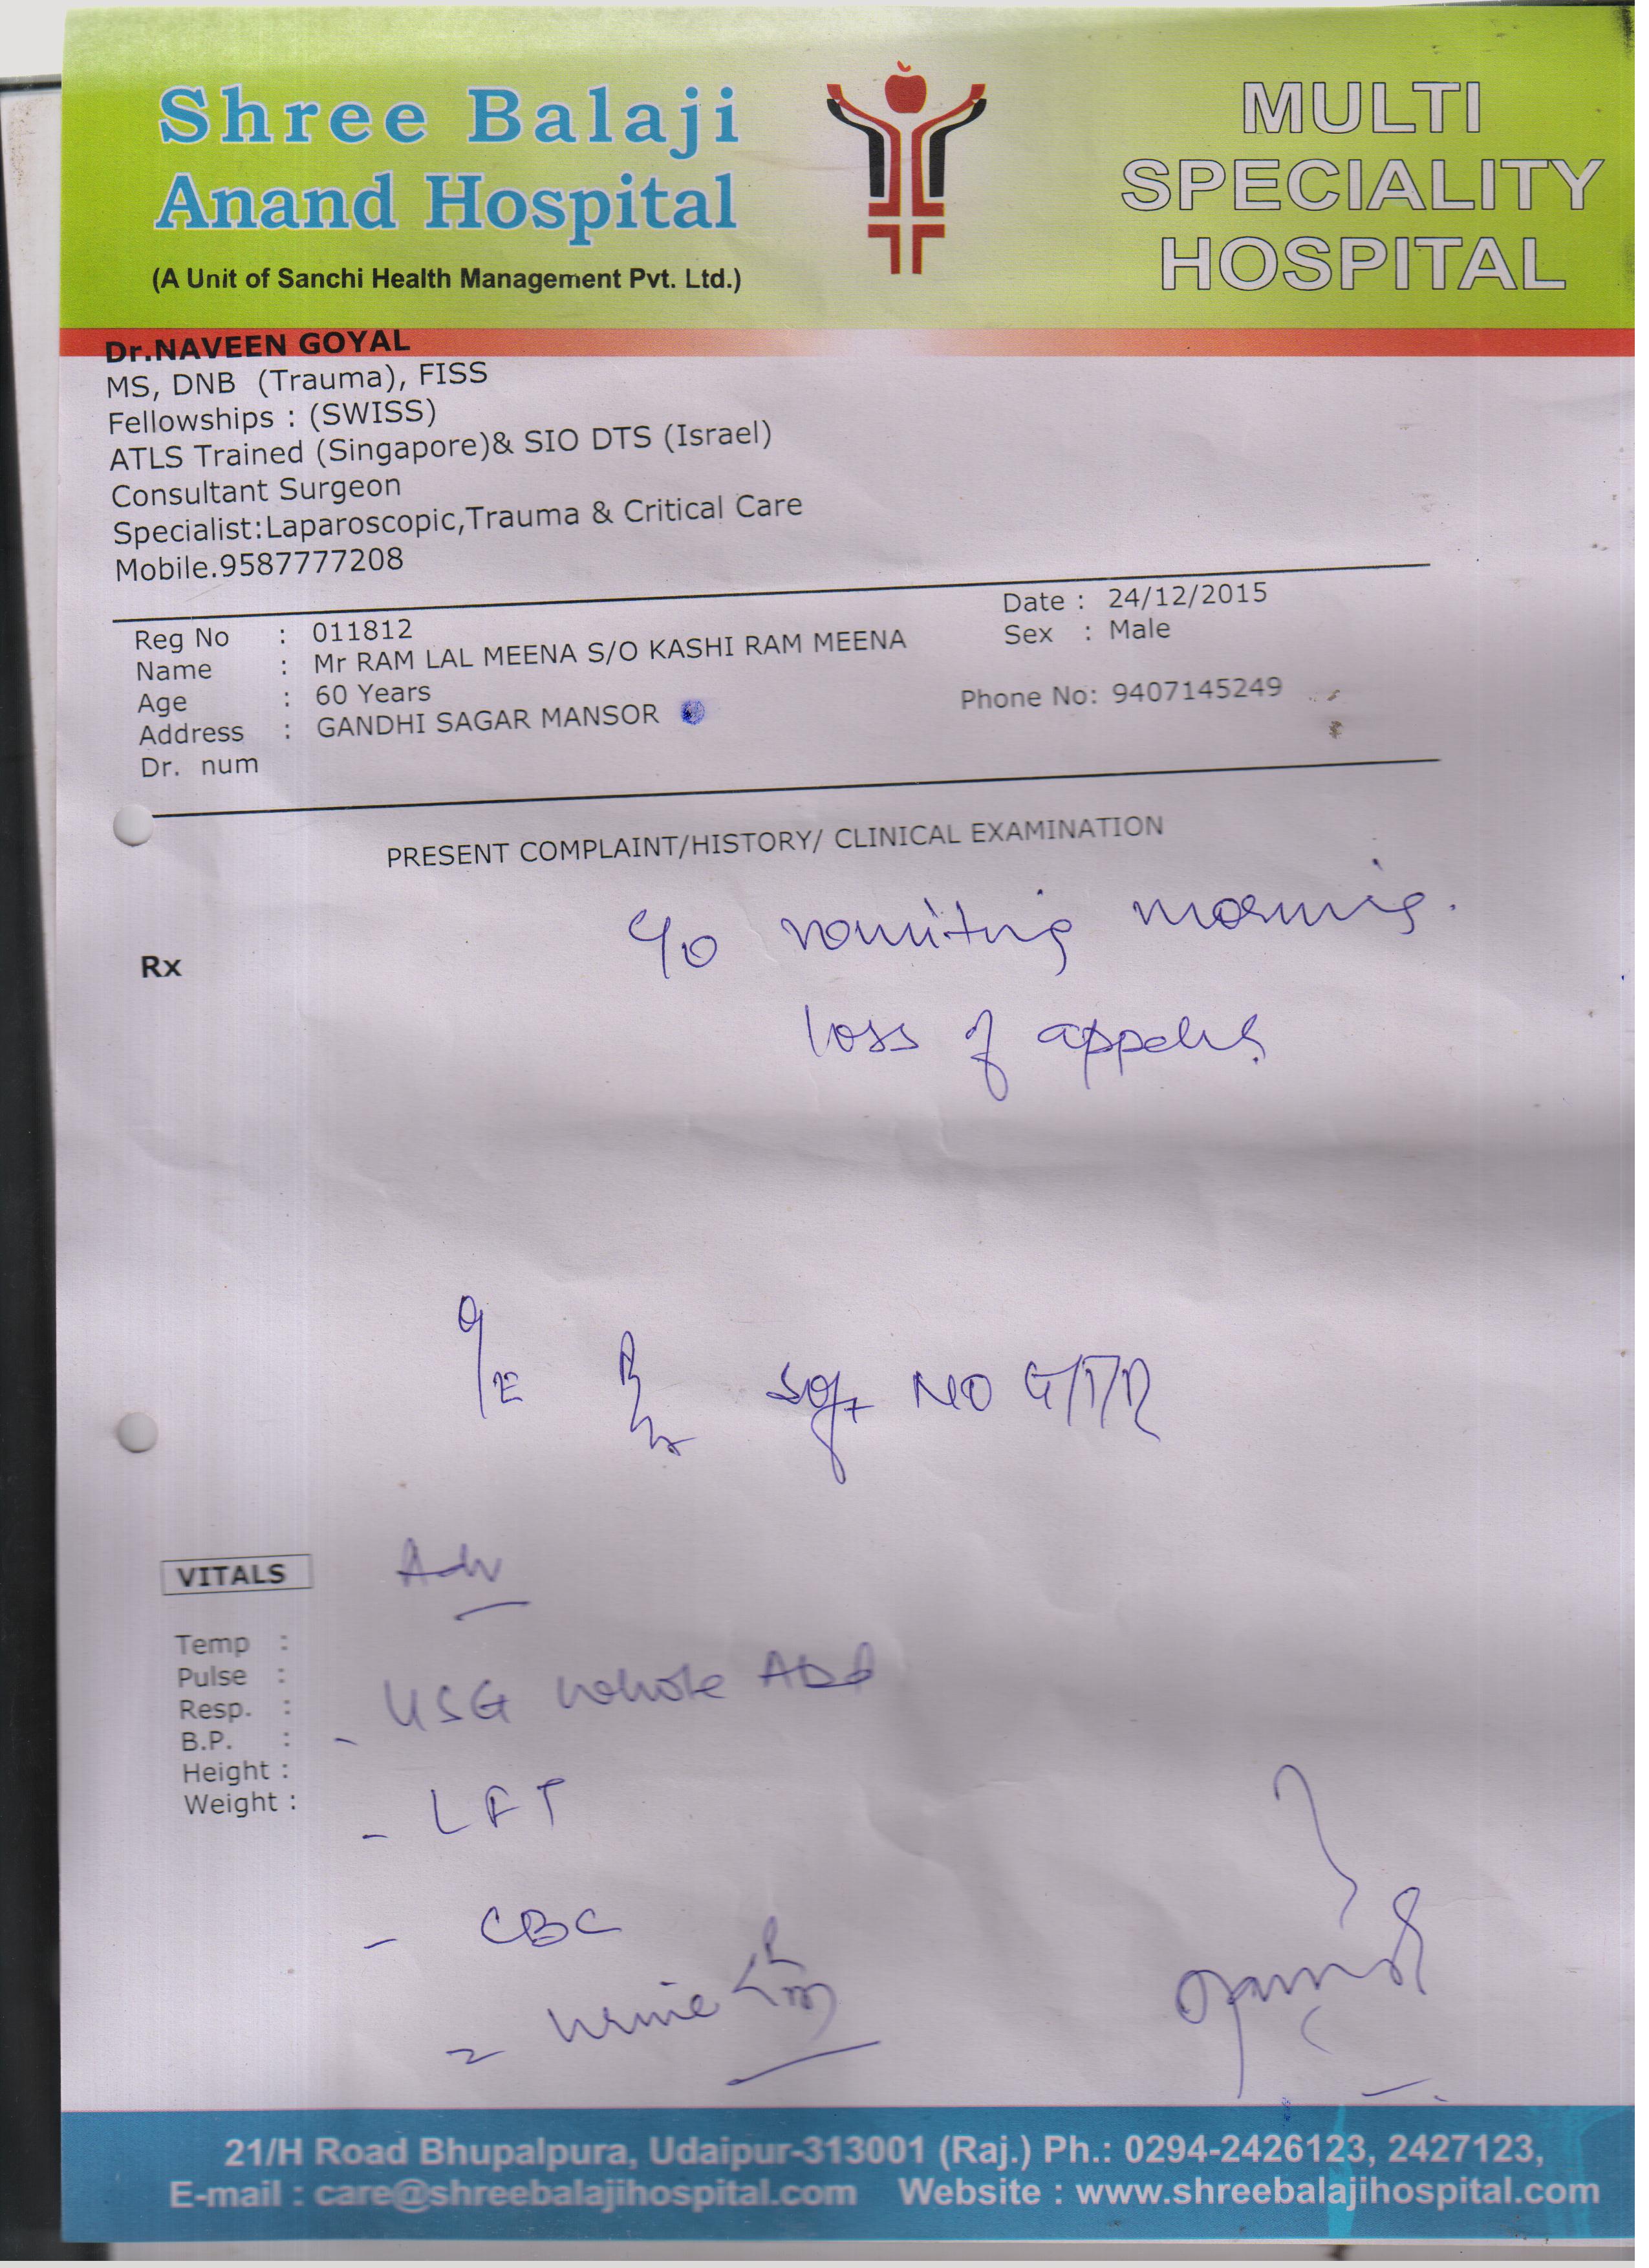 Shree Balaji
Anand Hospital
(A Unit of Sanchi Health Management Pvt. Ltd.)
MULTI
SPECIALITY
HOSPITAL
Dr.NAVEEN GOYAL
MS, DNB (Trauma), FISS
Fellowships : (SWISS)
ATLS Trained (Singapore)& SIO DTS (Israel)
Consultant Surgeon
Specialist:Laparoscopic,Trauma & Critical Care
Mobile.9587777208
Date : 24/12/2015
Reg No : 011812
Sex : Male
Name : Mr RAM LAL MEENA S/O KASHI RAM MEENA
Age : 60 Years
Phone No: 9407145249
Address : GANDHI SAGAR MANSOR
Dr. num
PRESENT COMPLAINT/HISTORY/ CLINICAL EXAMINATION
C/O vomiting morning.
Rx
loss of appetite
O/E soft NO G/T/R
VITALS
Adv
Temp :
Pulse :
Resp. :
B.P. :
Height :
Weight :
- USG whole Abd
- LFT
- CBC
- urine
21/H Road Bhupalpura, Udaipur-313001 (Raj.) Ph.: 0294-2426123, 2427123,
E-mail : care@shreebalajihospital.com Website : www.shreebalajihospital.com